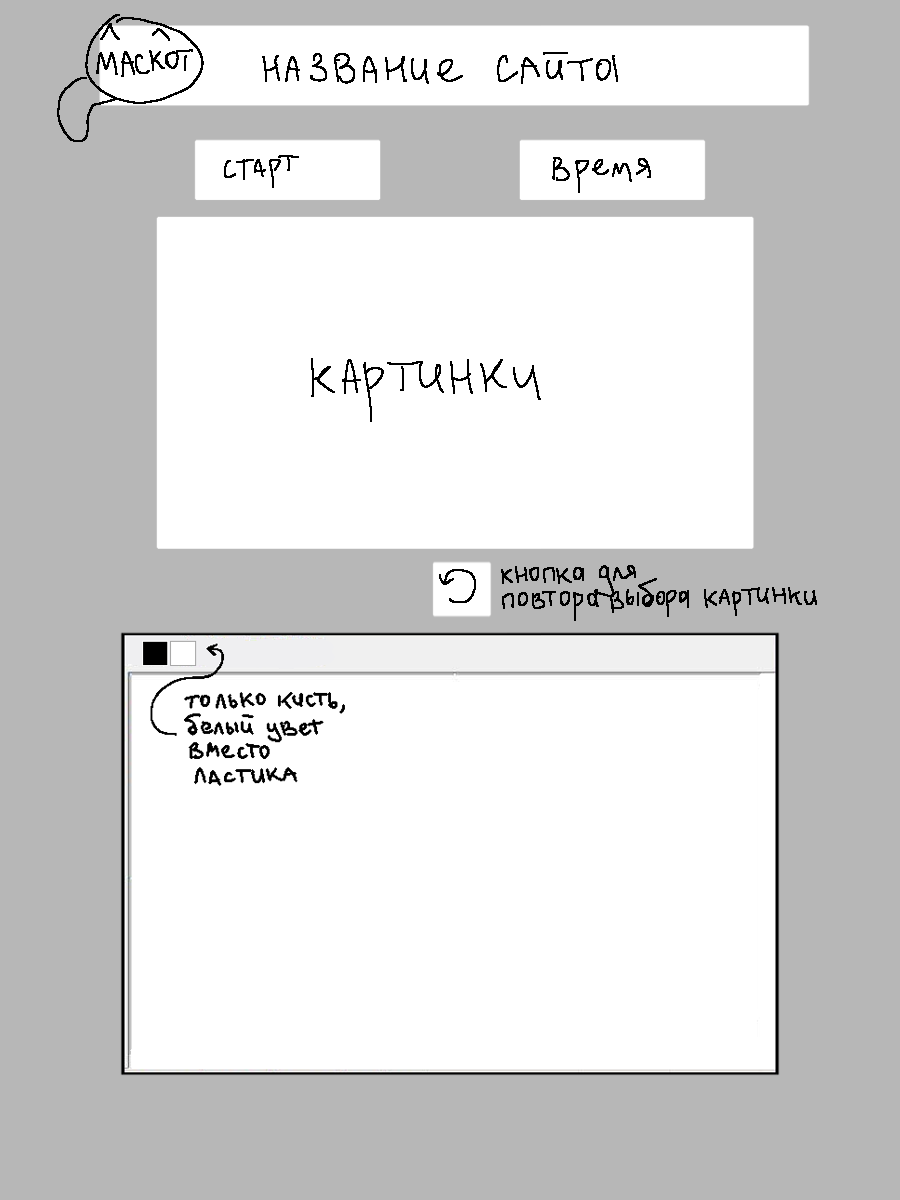 МАСКОТ
НАЗВАНИЕ САЙТА
СТАРТ
ВРЕМЯ
КАРТИНКИ
КНОПКА ДЛЯ
ПОВТОРА ВЫБОРА КАРТИНКИ
ТОЛЬКО КИСТЬ,
БЕЛЫЙ ЦВЕТ
ВМЕСТО
ЛАСТИКА